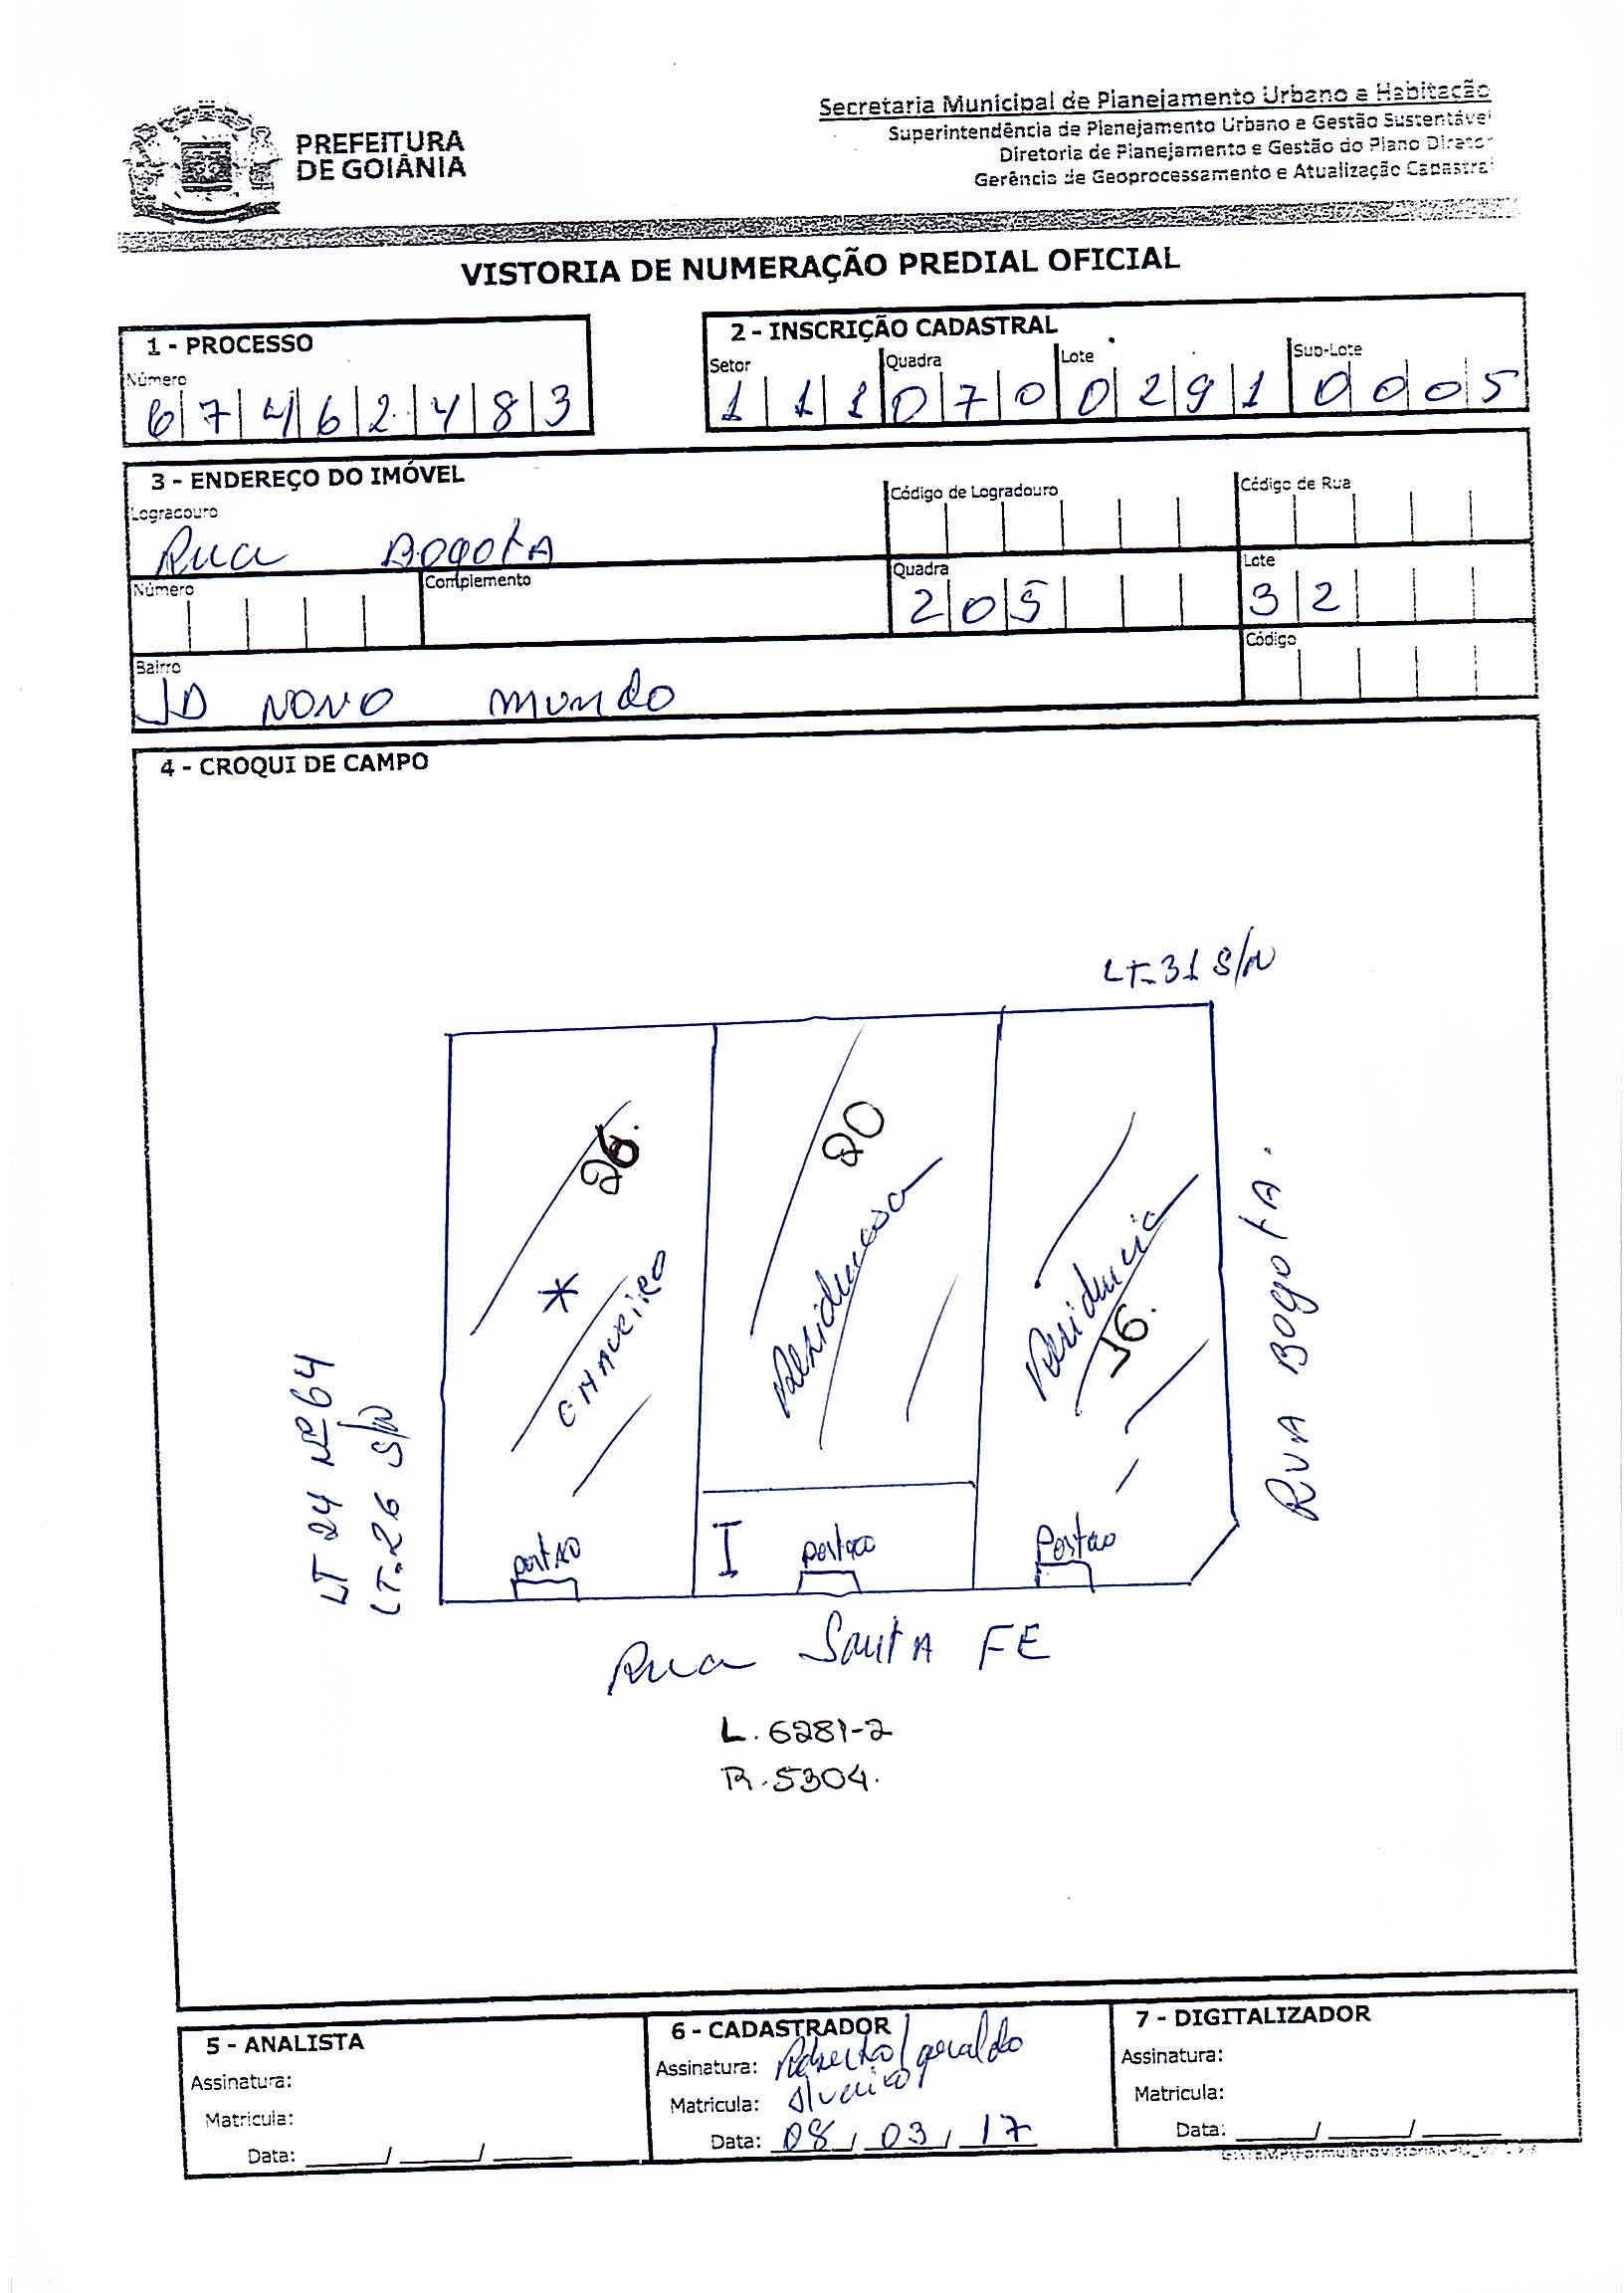 PREFEITURA
DE GOIÂNIA
Secretaria Municipal de Planejamento Urbano e Habitação
Superintendência de Planejamento Urbano e Gestão Sustentável
Diretoria de Planejamento e Gestão do Plano Diretor
Gerência de Geoprocessamento e Atualização Cadastral
VISTORIA DE NUMERAÇÃO PREDIAL OFICIAL
1 - PROCESSO
Número
67462483
2 - INSCRIÇÃO CADASTRAL
Setor Quadra Lote Sub-Lote
111 070 0291 0005
3 - ENDEREÇO DO IMÓVEL
Logradouro
Rua Bogota
Código de Logradouro
Código de Rua
Número
Complemento
Quadra
205
Lote
32
Bairro
JD NOVO mundo
Código
4 - CROQUI DE CAMPO
LT-31 S/N
26.
*
CHAVEIRO
portão
20
Residencia
I
portao
Residencia
16.
Portao
LT 24 Nº 64
LT.26 S/N
RUA BOgotA.
Rua SantA FE
L. 6281-2
R. 5304.
5 - ANALISTA
Assinatura:
Matricula:
Data: ____/____/____
6 - CADASTRADOR
Assinatura: Roberto/geraldo
Matricula:
Data: 08/03/17
7 - DIGITALIZADOR
Assinatura:
Matricula:
Data: ____/____/____